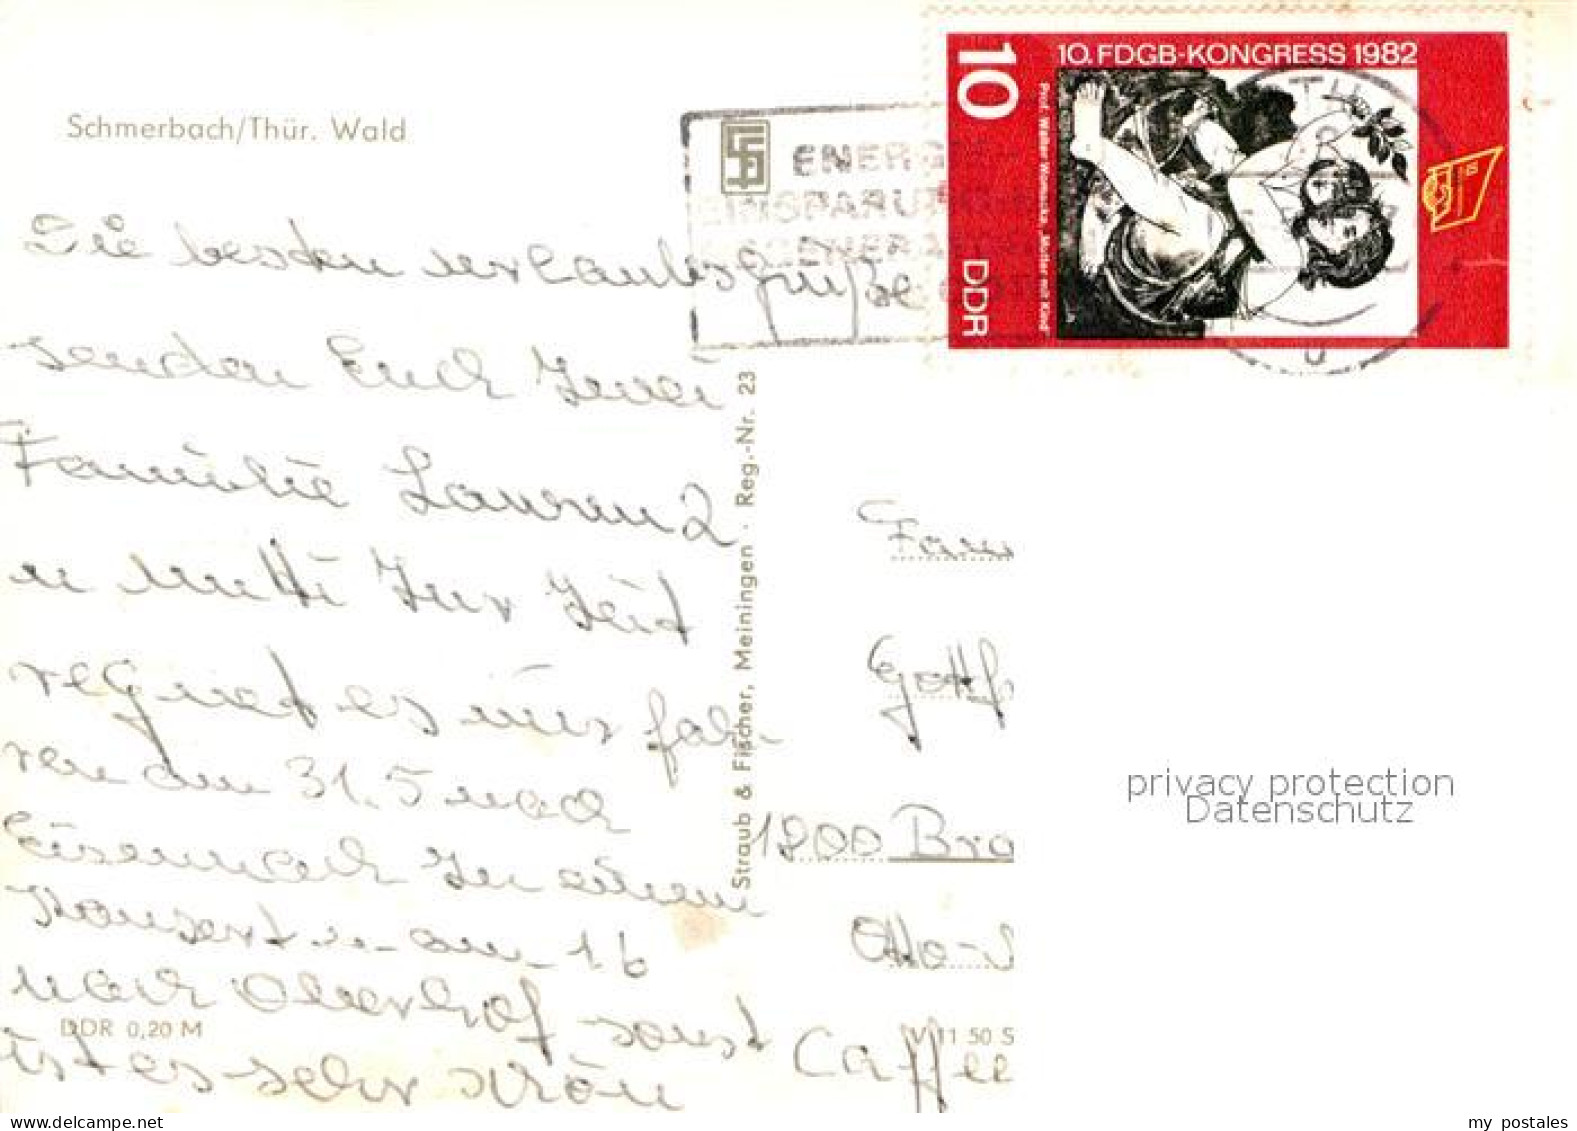 10. FDGB-KONGRESS 1982
10
Prof. Walter Womacka, „Mutter mit Kind"
DDR
ENERG
Schmerbach/Thür. Wald
Die besten Urlaubsgrüße
senden Euch Zwei
Familie Laurenz
u Mutti Zur Zeit
regnet es wir fah-
ren am 31.5 nach
Eisenach Zu einem
Konzert u- am 1 6
nach Oberhof sonst
ist es sehr schön
DDR 0,20 M
Straub & Fischer, Meiningen · Reg.-Nr. 23
Fam
Gottf
1800 Bra
Otto-
V 11 50 S
Caffee
privacy protection
Datenschutz
my postales